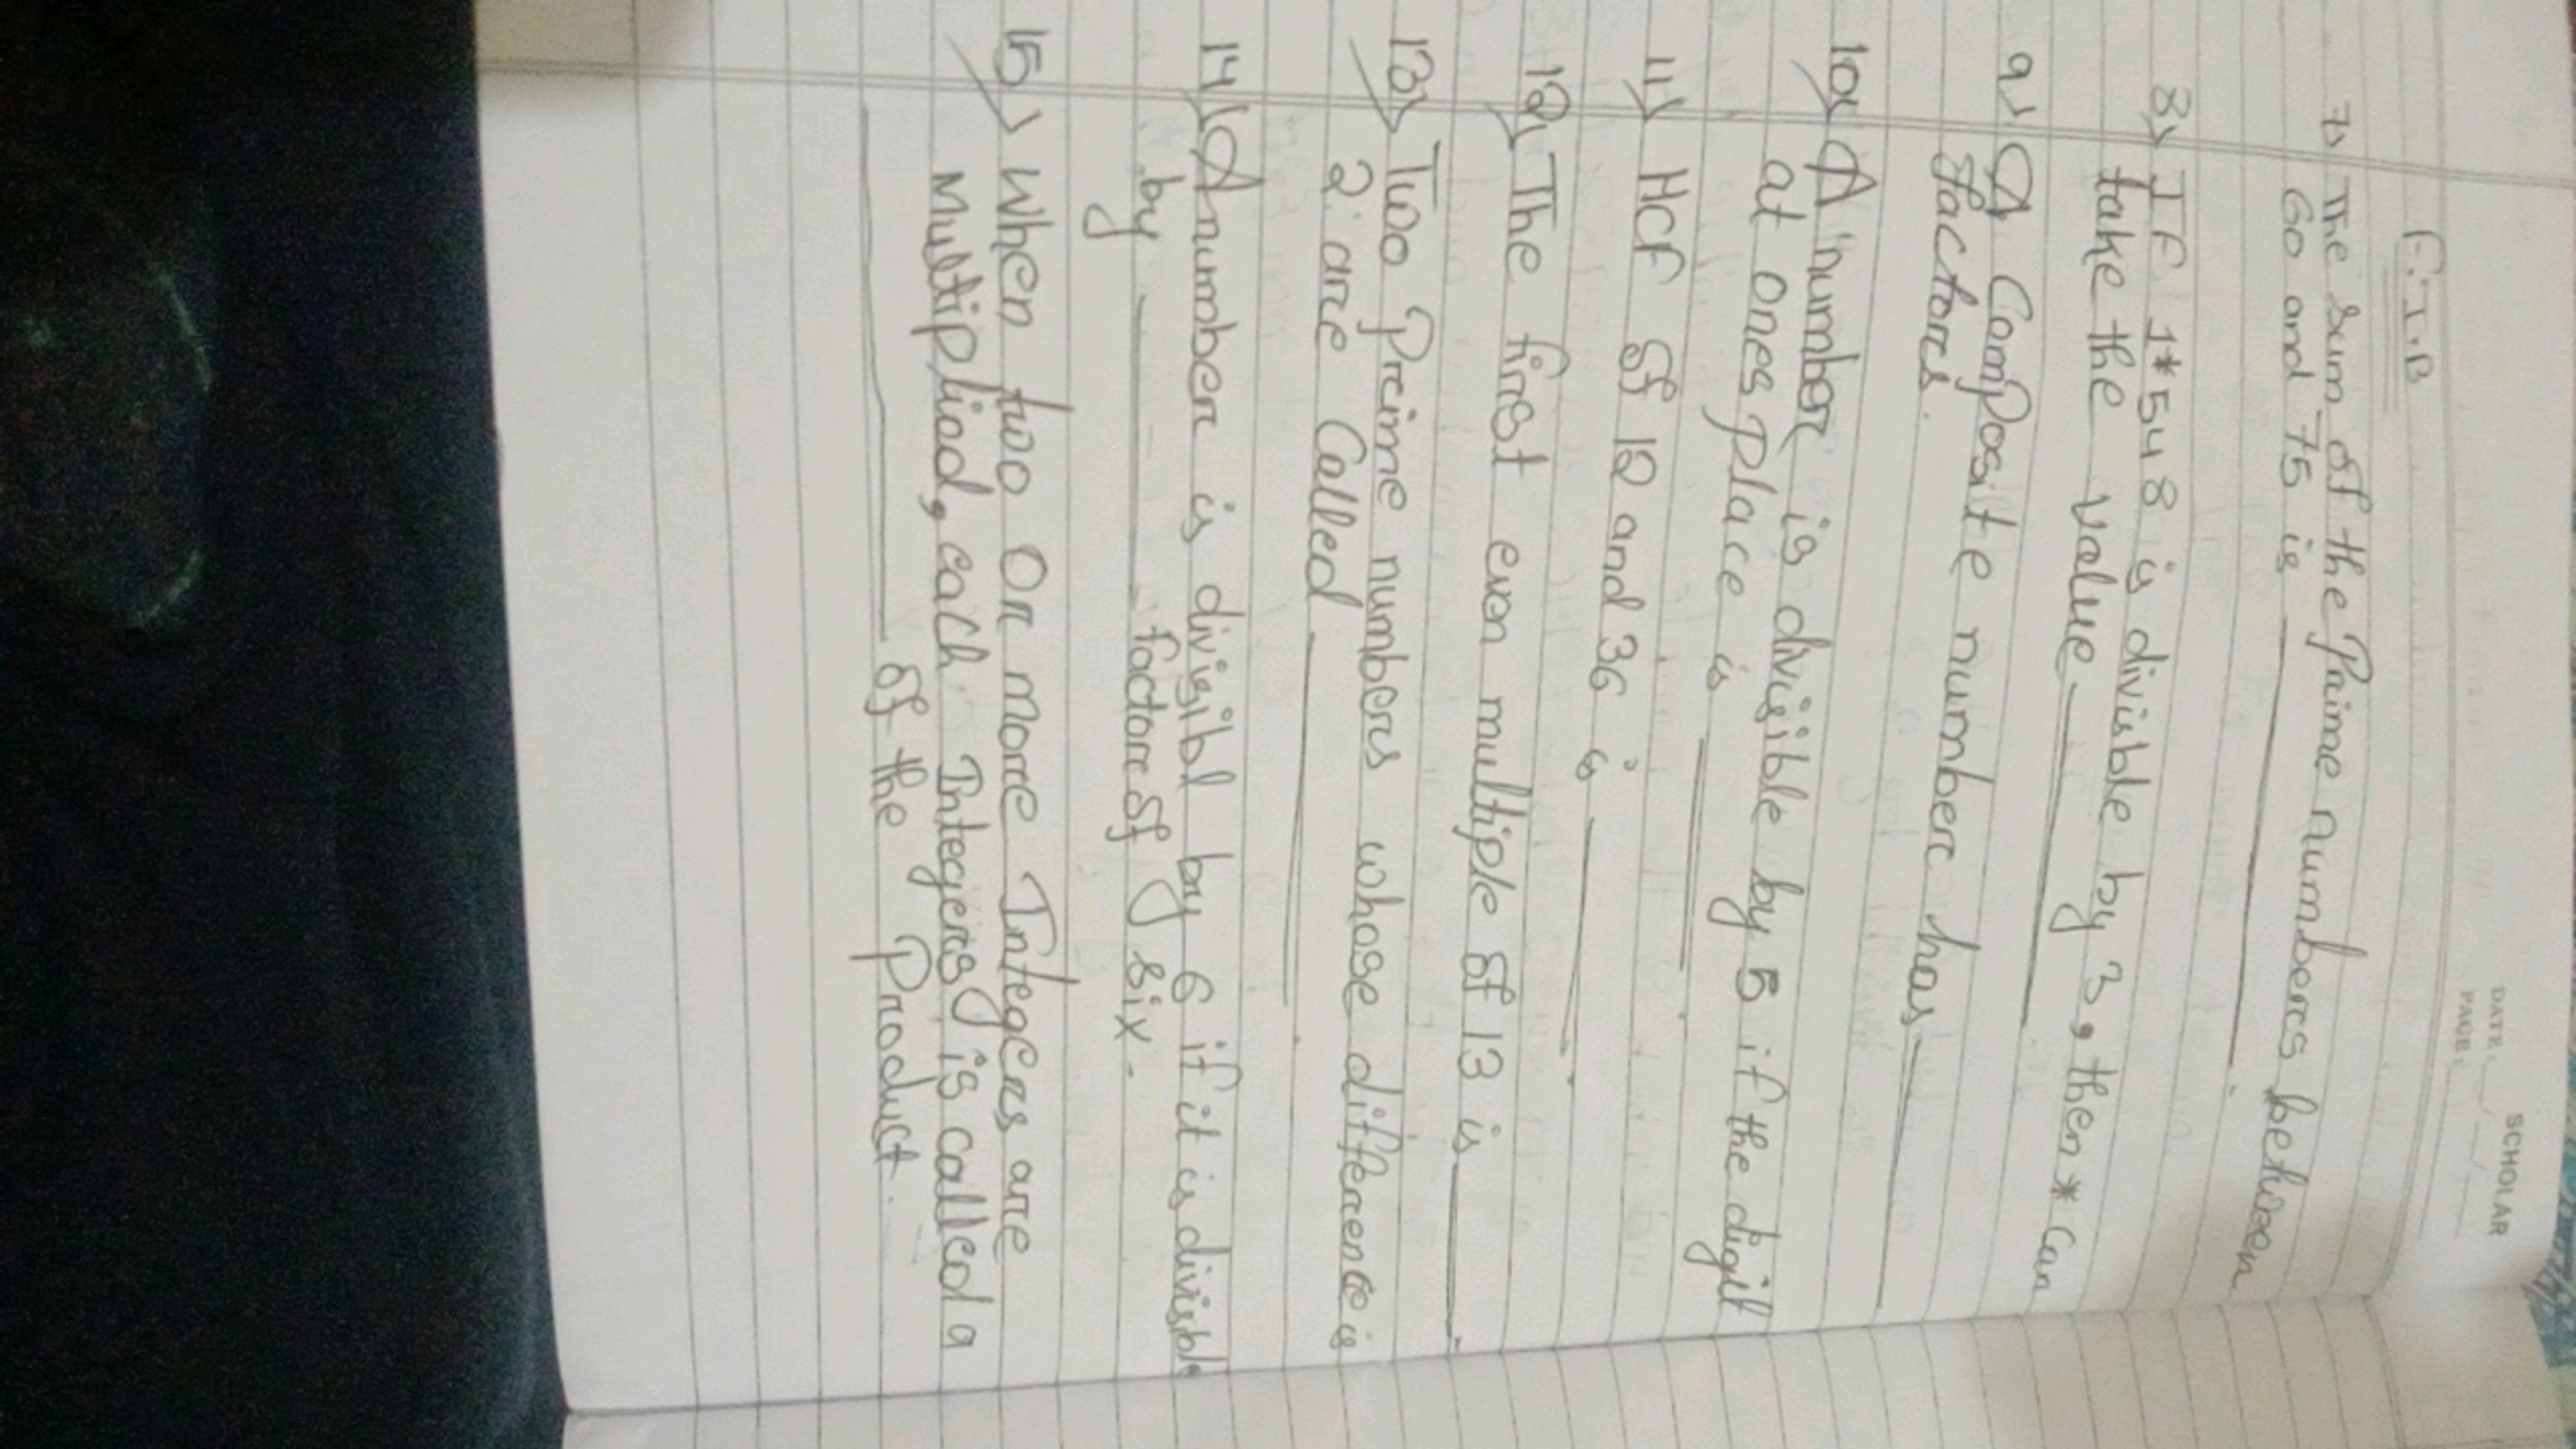 SCHOLAR
DATE: / /
PAGE:
F.I.B
7) The sum of the Prime numbers between
60 and 75 is ______.
8) If 1*548 is divisible by 3, then * can
take the value ______
9) A Composite number has ______
factors.
10) A number is divisible by 5 if the digit
at ones place is ______
11) HCF of 12 and 36 is ______.
12) The first even multiple of 13 is ______.
13) Two Prime numbers whose difference is
2 are Called ______.
14) A number is divisibl by 6 if it is divisible
by ______ factor of six.
15) When two or more Integers are
Multipliad, each Integers is called a
______ of the Product.